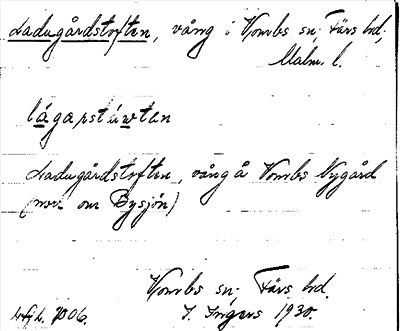 Ladugårdstoften, vång i Vombs sn; Färs hd;
Malm. l.
lágarstúwten
Ladugårdstoften, vång å Vombs Nygård
(nv. om Bysjön)
Vombs sn; Färs hd.
I. Ingers 1930.